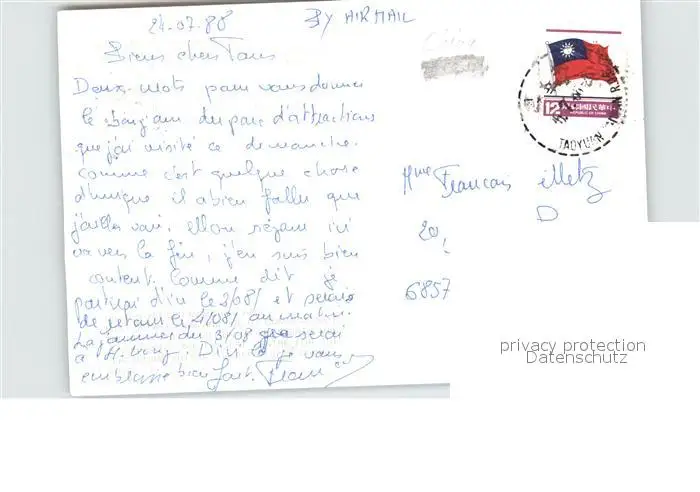 24.07.88
BY AIR MAIL
Biens chers Tous
Deux mots pour vous donner
le bonjour du parc d'attractions
que j'ai visité ce dimanche.
Comme c'est quelque chose
d'unique il a bien fallu que
j'aille voir. Mon séjour ici
va vers la fin, j'en suis bien
content. Comme dit je
partirai d'ici le 3/08/ et serais
de retour le 4/08/ au matin.
La journée du 3/08 serai
à H. Kong. D'ici là je vous
embrasse bien fort.
Mme Francais Metz
D
20,
6857
12
中華民國郵票
REPUBLIC OF CHINA
TAOYUAN
privacy protection
Datenschutz